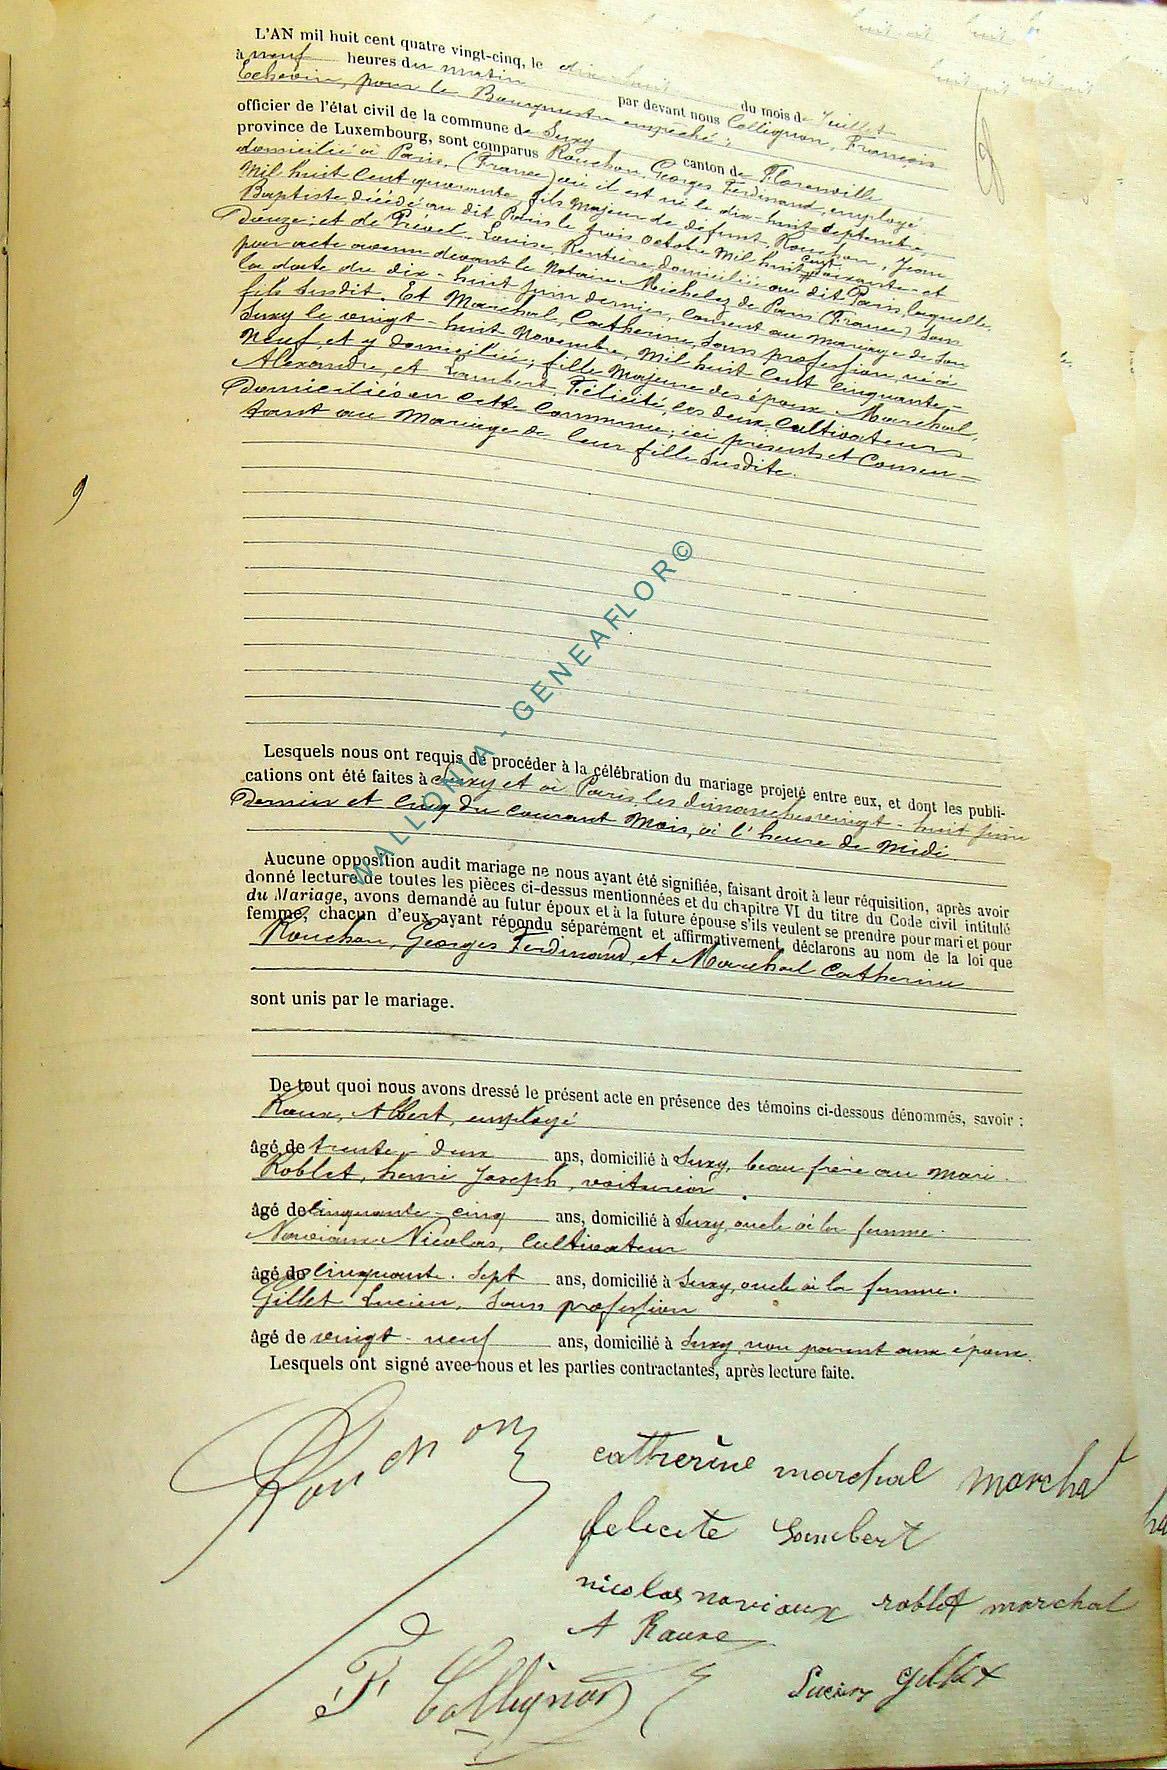 L'AN mil huit cent quatre vingt-cinq, le dix-huit du mois de Juillet
à neuf heures du matin par devant nous Collignon, François
Echevin, pour le Bourgmestre empêché;
officier de l'état civil de la commune de Suxy canton de Florenville
province de Luxembourg, sont comparus Rouchon, Georges Ferdinand, employé
domicilié à Paris, (France) où il est né le dix-huit septembre
Mil huit Cent quarante, fils Majeur de défunt, Rouchon, Jean
Baptiste, décédé au dit Paris le trois octobre Mil huit cent soixante et
Douze; et de Prével, Louise, Rentière, domiciliée au dit Paris, laquelle,
par acte avenu devant le Notaire Michelez de Paris (France) sous
la date du dix-huit juin dernier, consent au mariage de son
fils Susdit. Et Marchal, Catherine, Sans profession, née à
Suxy le vingt-huit Novembre, Mil huit Cent Cinquante-
Neuf, et y domiciliée; fille Majeure des époux Marchal,
Alexandre, et Lambert, Félicité, les deux Cultivateurs
Domiciliés en cette Commune; ici présents et Consen-
tant au Mariage de leur fille Susdite.
9
Lesquels nous ont requis de procéder à la célébration du mariage projeté entre eux, et dont les publi-
cations ont été faites à Suxy et à Paris, les dimanches vingt-huit juin
Dernier et Cinq du courant Mois, à l'heure de Midi.
Aucune opposition audit mariage ne nous ayant été signifiée, faisant droit à leur réquisition, après avoir
donné lecture de toutes les pièces ci-dessus mentionnées et du chapitre VI du titre du Code civil intitulé
du Mariage, avons demandé au futur époux et à la future épouse s'ils veulent se prendre pour mari et pour
femme, chacun d'eux ayant répondu séparément et affirmativement, déclarons au nom de la loi que
Rouchon, Georges Ferdinand, et Marchal Catherine
sont unis par le mariage.
De tout quoi nous avons dressé le présent acte en présence des témoins ci-dessous dénommés, savoir :
Albert, employé
âgé de trente-deux ans, domicilié à Suxy, beau frère au Mari.
Roblet, henri Joseph, voiturier
âgé de Cinquante-cinq ans, domicilié à Suxy, oncle à la femme.
Noviaux Nicolas, Cultivateur
âgé de cinquante-Sept ans, domicilié à Suxy, oncle à la femme.
Gillet Lucien, Sans profession
âgé de vingt-neuf ans, domicilié à Suxy, non parent aux époux.
Lesquels ont signé avec nous et les parties contractantes, après lecture faite.
Rouchon
catherine marchal marchal
felicite Lambert
nicolas noviaux roblet marchal
A
F Collignon
Lucien Gillet
WALLONIA - GENEAFLOR©